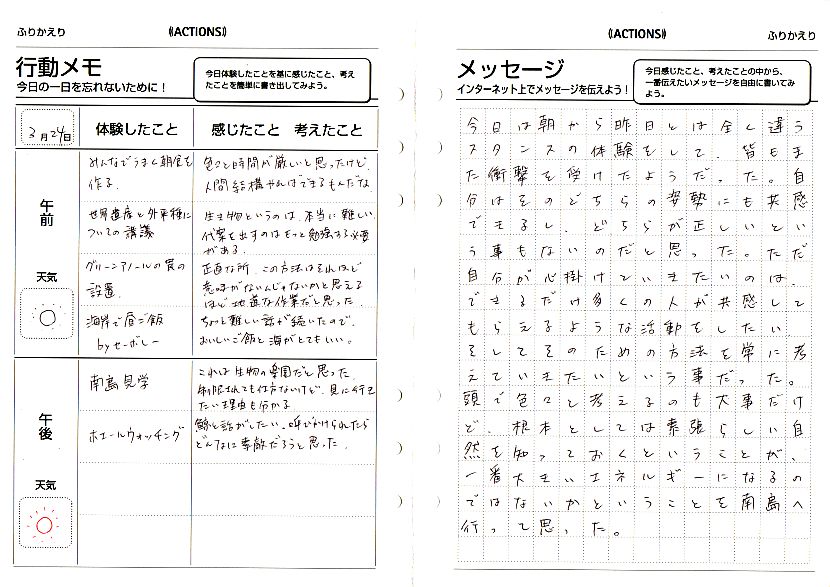 ふりかえり
《ACTIONS》
行動メモ
今日の一日を忘れないために！
今日体験したことを基に感じたこと、考え
たことを簡単に書き出してみよう。
3月24日
体験したこと
感じたこと 考えたこと
午前
天気
みんなでうまく朝食を
作る．
色々と時間が厳しいと思ったけど、
人間結構やればできるもんだな
世界遺産と外来種に
ついての講義
生き物というのは、本当に難しい
代案を出すのはもっと勉強する必要
がある．
グリーンアノールの罠の
設置．
正直な所、この方法はそれほど
意味がないんじゃないかと思える
ほど地道な作業だと思った．
海岸で昼ご飯
by セーボレー
ちょっと難しい話が続いたので、
おいしいご飯と海がとてもいい。
午後
天気
南島見学
これは生物の楽園だと思った．
制限されても仕方ないけど、見に行き
たい理由も分かる
ホエールウォッチング
鯨と話がしたい．呼びかけられたら
どんなに素敵だろうと思った．
《ACTIONS》
ふりかえり
メッセージ
インターネット上でメッセージを伝えよう！
今日感じたこと、考えたことの中から、
一番伝えたいメッセージを自由に書いてみ
よう。
今日は朝から昨日とは全く違う
スタンスの体験をして、皆もま
た衝撃を受けたようだった。自
分はそのどちらの姿勢にも共感
できるし、どちらが正しいとい
う事もないのだと思った。ただ
自分が心掛けていきたいのは、
できるだけ多くの人が共感して
もらえるような活動をしたい
そしてそのための方法を常に考
えていきたいという事だった。
頭で色々と考えるのも大事だけ
ど、根本としては素張らしい自
然を知っておくということが、
一番大きいエネルギーになるの
ではないかということを南島へ
行って思った。